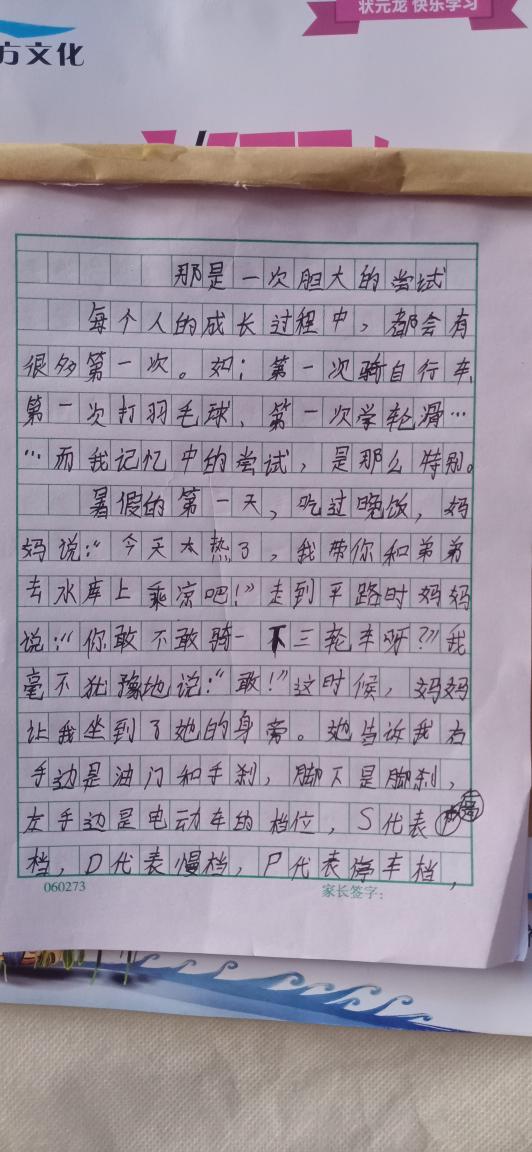 状元龙 快乐学习
方文化
那是一次胆大的尝试
每个人的成长过程中，都会有
很多第一次。如：第一次骑自行车、
第一次打羽毛球、第一次学轮滑…
…而我记忆中的尝试，是那么特别。
暑假的第一天，吃过晚饭，妈
妈说：“今天太热了，我带你和弟弟
去水库上乘凉吧！”走到平路时妈妈
说：“你敢不敢骑一下三轮车呀？”我
毫不犹豫地说：“敢！”这时候，妈妈
让我坐到了她的身旁。她告诉我右
手边是油门和手刹，脚下是脚刹，
左手边是电动车的档位，S代表高
档，D代表慢档，P代表停车档，
060273
家长签字：